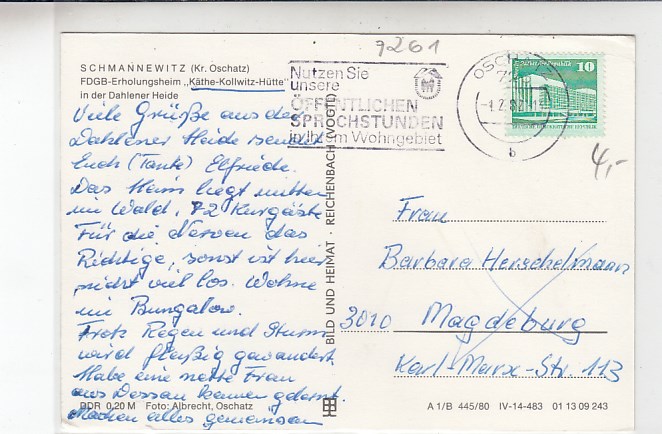 7261
SCHMANNEWITZ (Kr. Oschatz)
FDGB-Erholungsheim „Käthe-Kollwitz-Hütte"
in der Dahlener Heide
Nutzen Sie
unsere
ÖFFENTLICHEN
SPRECHSTUNDEN
in Ihrem Wohngebiet
OSCHATZ
b
10
DEUTSCHE DEMOKRATISCHE REPUBLIK
4,-
Viele Grüße aus der
Dahlener Heide sendet
Euch (Tante) Elfriede.
Das Heim liegt mitten
im Wald, 72 Kurgäste
Für die Nerven das
Richtige, sonst ist hier
nicht viel los. Wohne
im Bungalow.
Trotz Regen und Sturm
wird fleißig gewandert.
Habe eine nette Frau
aus Dessau kennen gelernt.
Machen alles gemeinsam
BILD UND HEIMAT · REICHENBACH (VOGTL)
Frau
Barbara Herschelmann
3010 Magdeburg
Karl-Marx-Str. 113
DDR 0,20 M Foto: Albrecht, Oschatz
A 1/B 445/80 IV-14-483 01 13 09 243